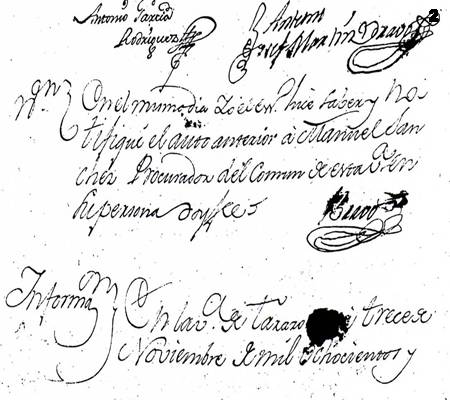 Antonio Garcia
Rodriguez
Antoni
Josef Martin Bravo
2
Nn.
En el mismo dia Yo el Esn. hice saber y No
tifiqué el auto anterior á Manuel San
chez Procurador del Comun de esta Va. en
su persona doy fee
Bravo
Informn.
En la Va. de Tarazo y trece de
Noviembre de mil Ochocientos y